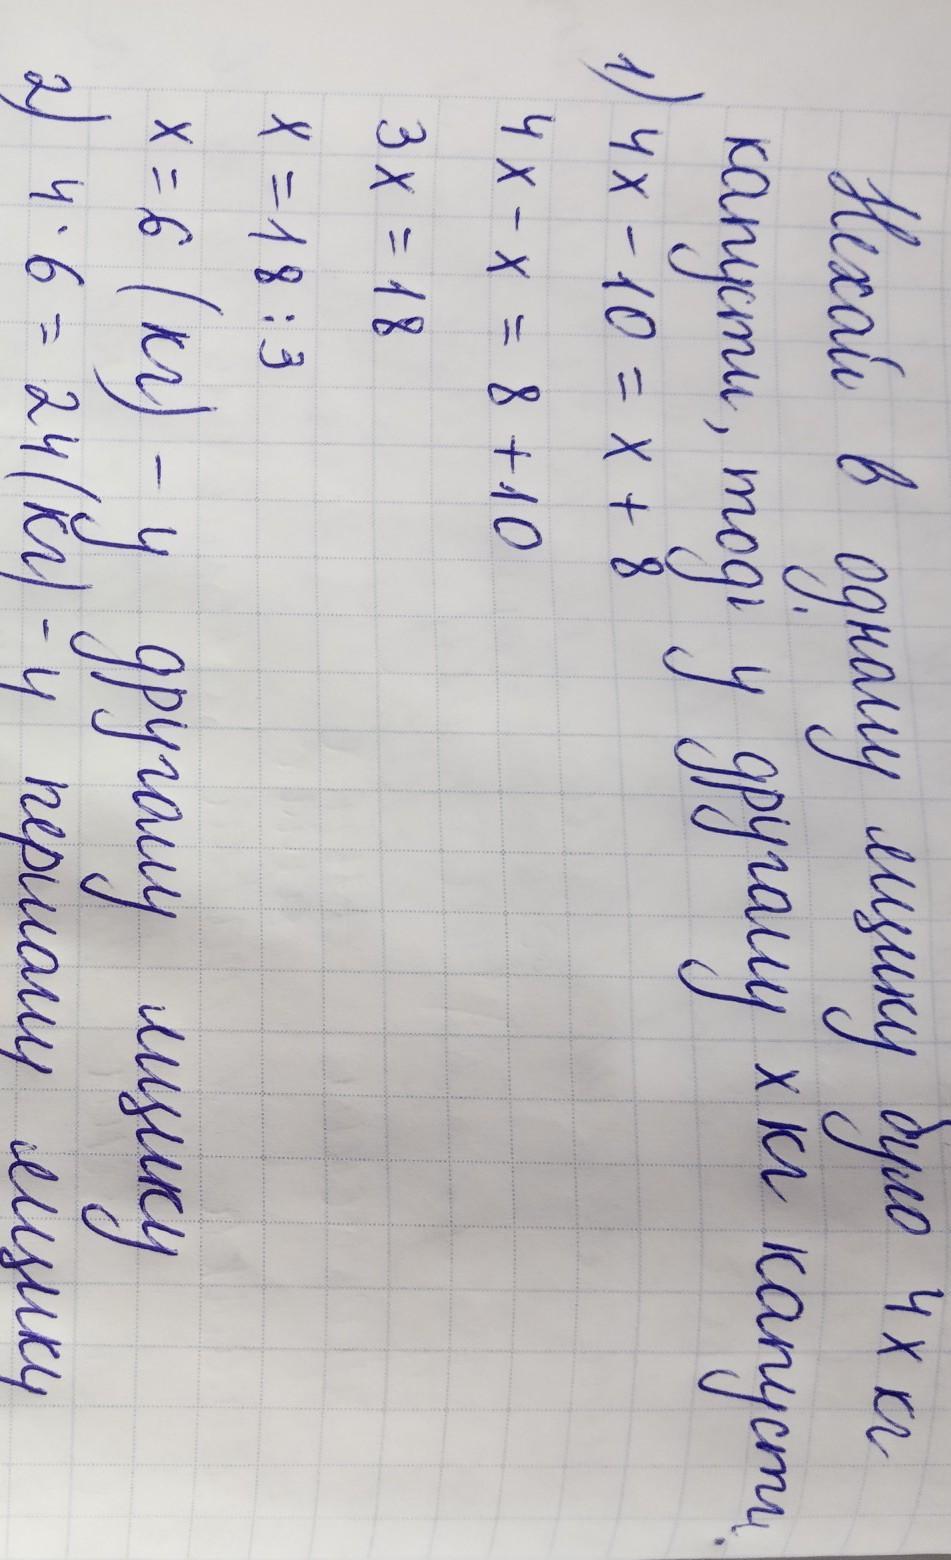 Нехай в одному ящику було 4х кг
капусти, тоді у другому х кг капусти.
1) 4х - 10 = х + 8
4х - х = 8 + 10
3х = 18
х = 18 : 3
х = 6 (кг) - у другому ящику
2) 4 · 6 = 24 (кг) - у першому ящику